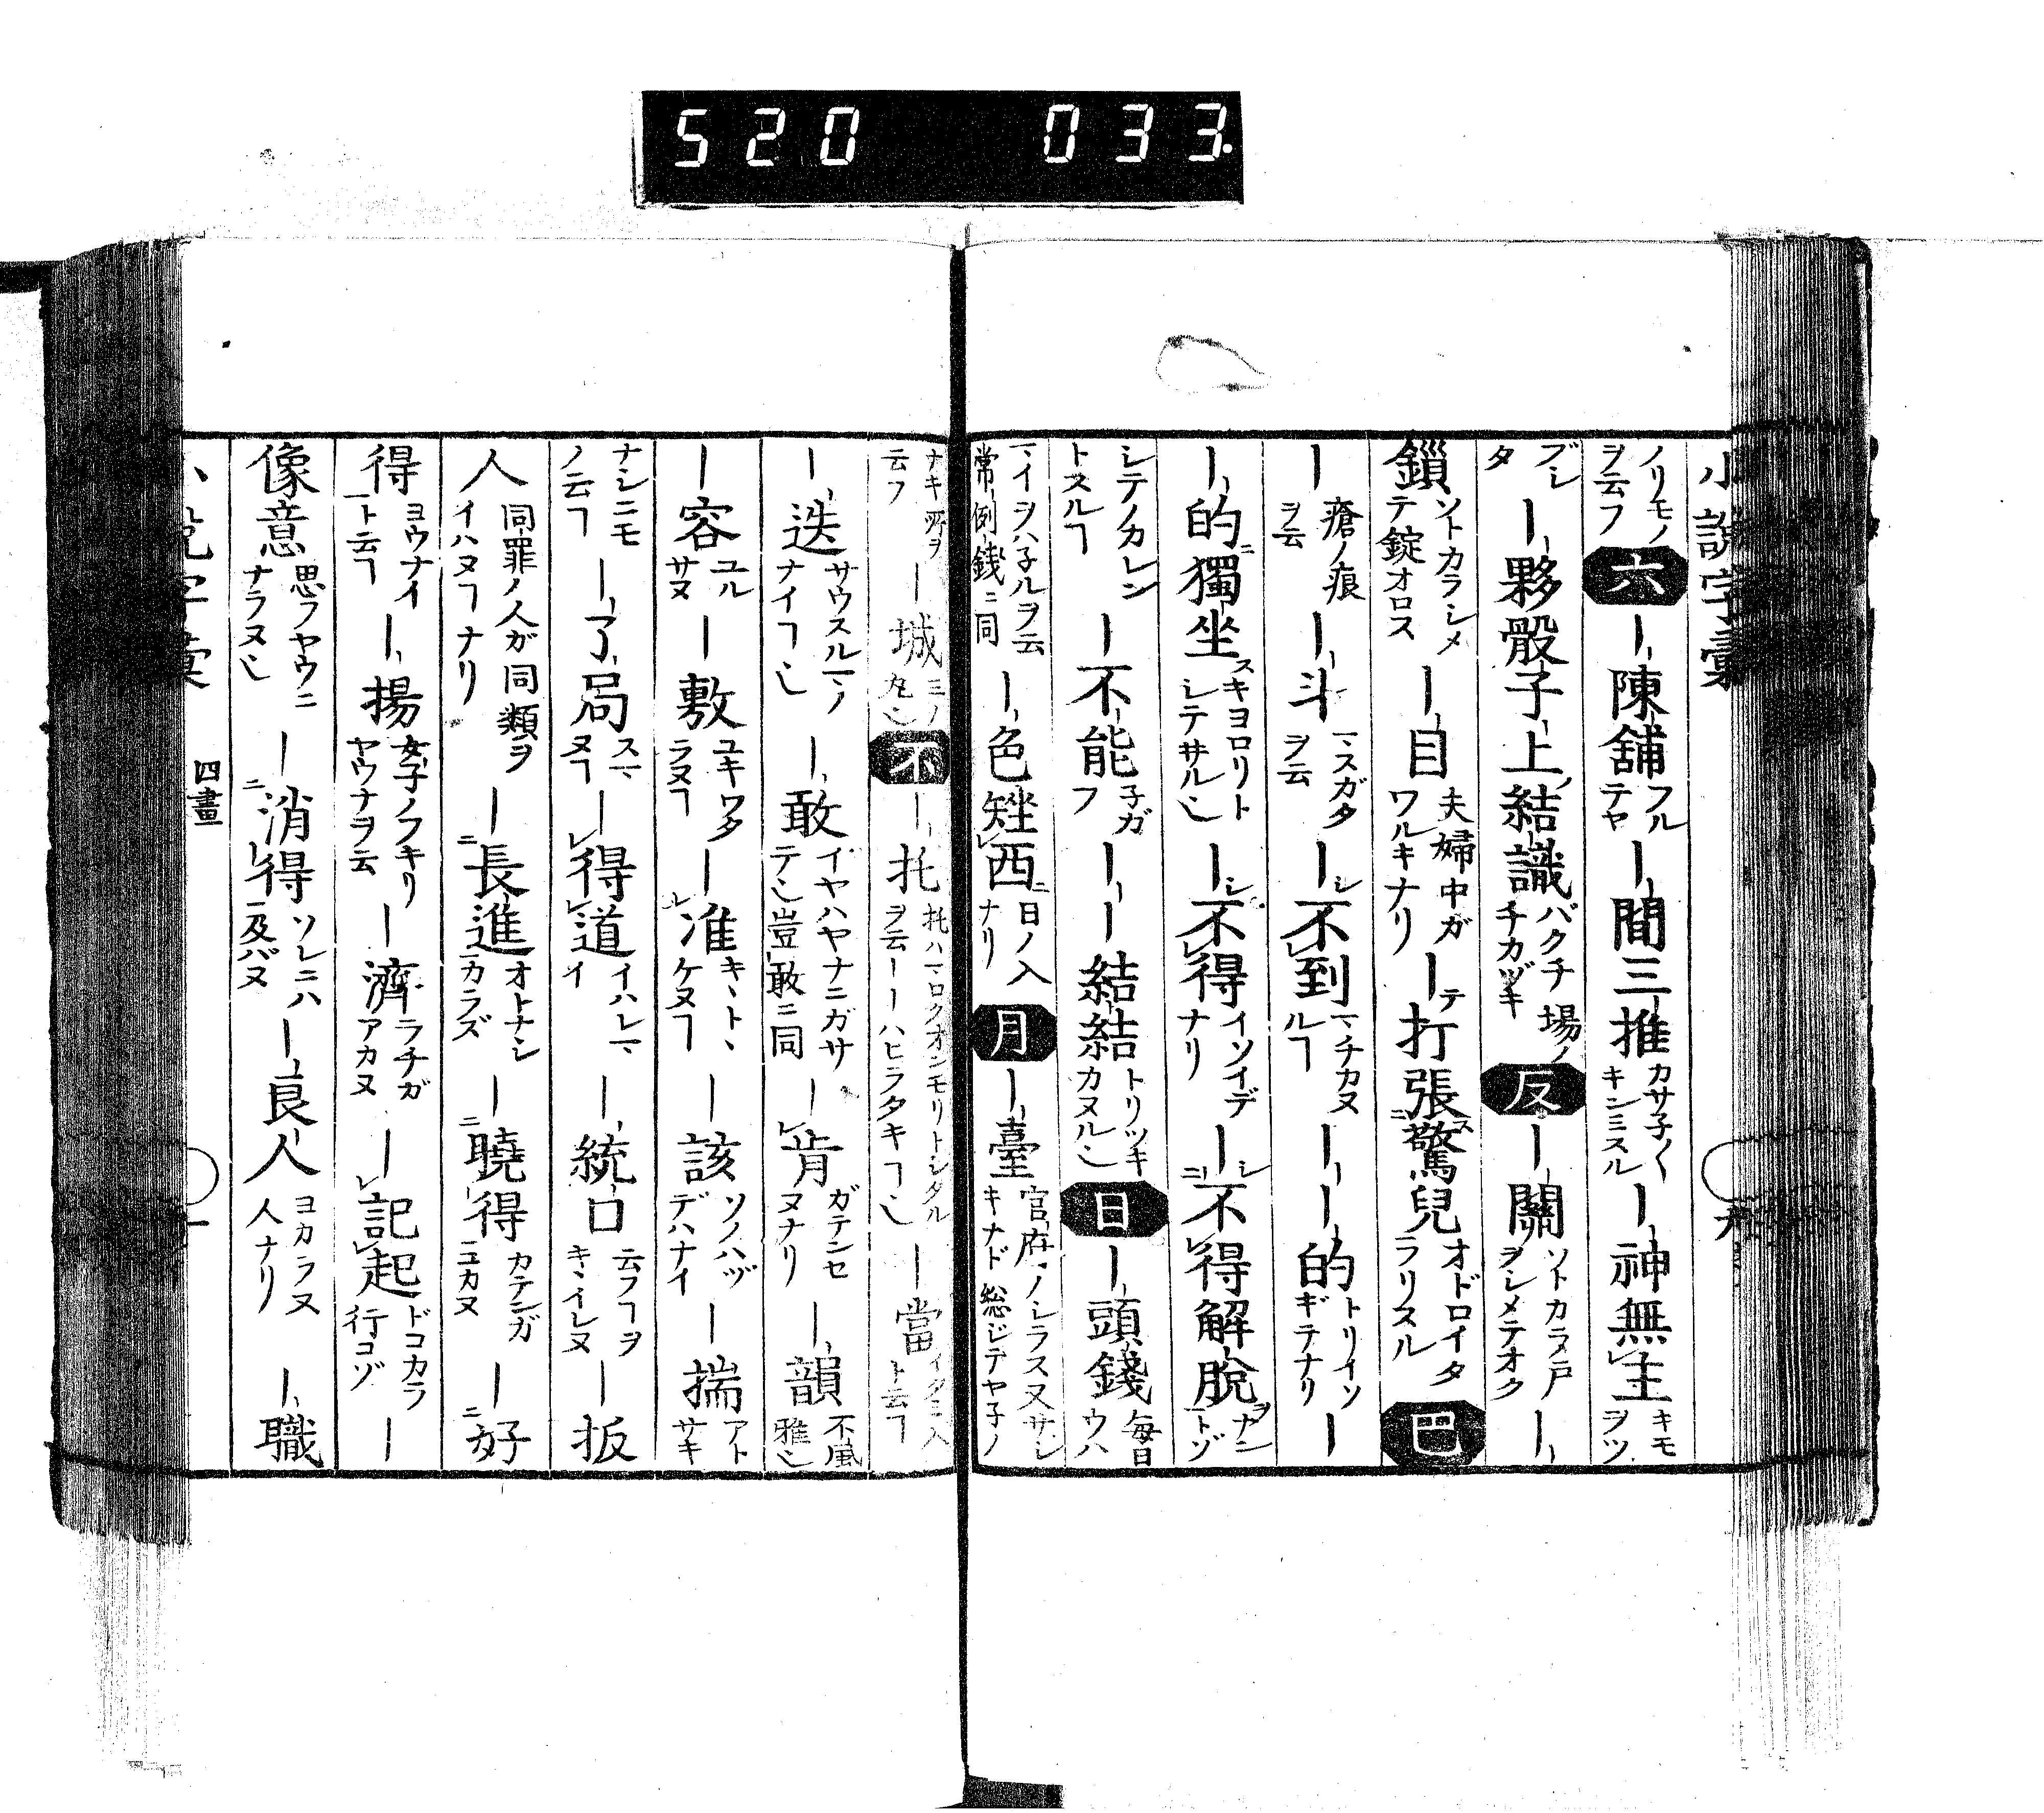 520 033.
小說字彙
ノリモノヲ云フ 六 ｜陳舖フルテヤ ｜間三推カサ子〱キンミスル ｜神無レ主キモヲツ
ブレタ ｜夥骰子上結識バクチ場ノチカヅキ 反 ｜關ソトカラ戸ヲシメテオク ｜
鎖ソトカラシメテ錠オロス ｜目夫婦中ガワルキナリ ｜テ打張驚兒オドロイタラリスル 巴
｜瘡ノ痕ヲ云 ｜斗マスガタヲ云 ｜不レ到マチカヌルヿ ｜｜的トリイソギテナリ ｜
｜的獨坐スキヨロリトシテサル也 ｜不レ得イソイデナリ ｜不レ得解脫ヲヤントゾ
シテノカレントスルヿ ｜不能子ガフ ｜｜結結トリツキカヌル也 日 ｜頭錢毎日ウハ
マイヲハ子ルヲ云常例錢ニ同 ｜色矬レ西日ノ入ナリ 月 ｜臺官府ノシラス又サシキナド総ジテヤ子ノ
ナキ所ヲ云フ ｜城三ノ丸也 不 ｜托托ハマロクオンモリトシタルヲ云｜｜ハヒラタキヿ也 ｜當
｜迭サウスルマノナイヿ也 ｜敢イヤハヤナニガサテ也豈敢ニ同 ｜肯ガテンセヌナリ ｜韻不風雅也
｜容ユルサヌ ｜敷ユキワタラヌヿ ｜准キヽトヽケヌヿ ｜該ソノハヅデハナイ ｜揣アトサキ
ナシニモノ云ヿ ｜了局スマヌヿ ｜得レ道イハレマイ ｜統口云フヿヲキヽイレヌ ｜扳
人同罪ノ人ガ同類ヲイハヌヿナリ ｜長進オトナシカラズ ｜曉得ガテンガユカヌ ｜好
得ヨウナイト云ヿ ｜揚女子ノフキリヤウナヲ云 ｜濟ラチガアカヌ ｜記起ドコカラ行コゾ ｜
像意思フヤウニナラヌ也 ｜消得ソレニハ及バヌ ｜良人ヨカラヌ人ナリ ｜職
四畫